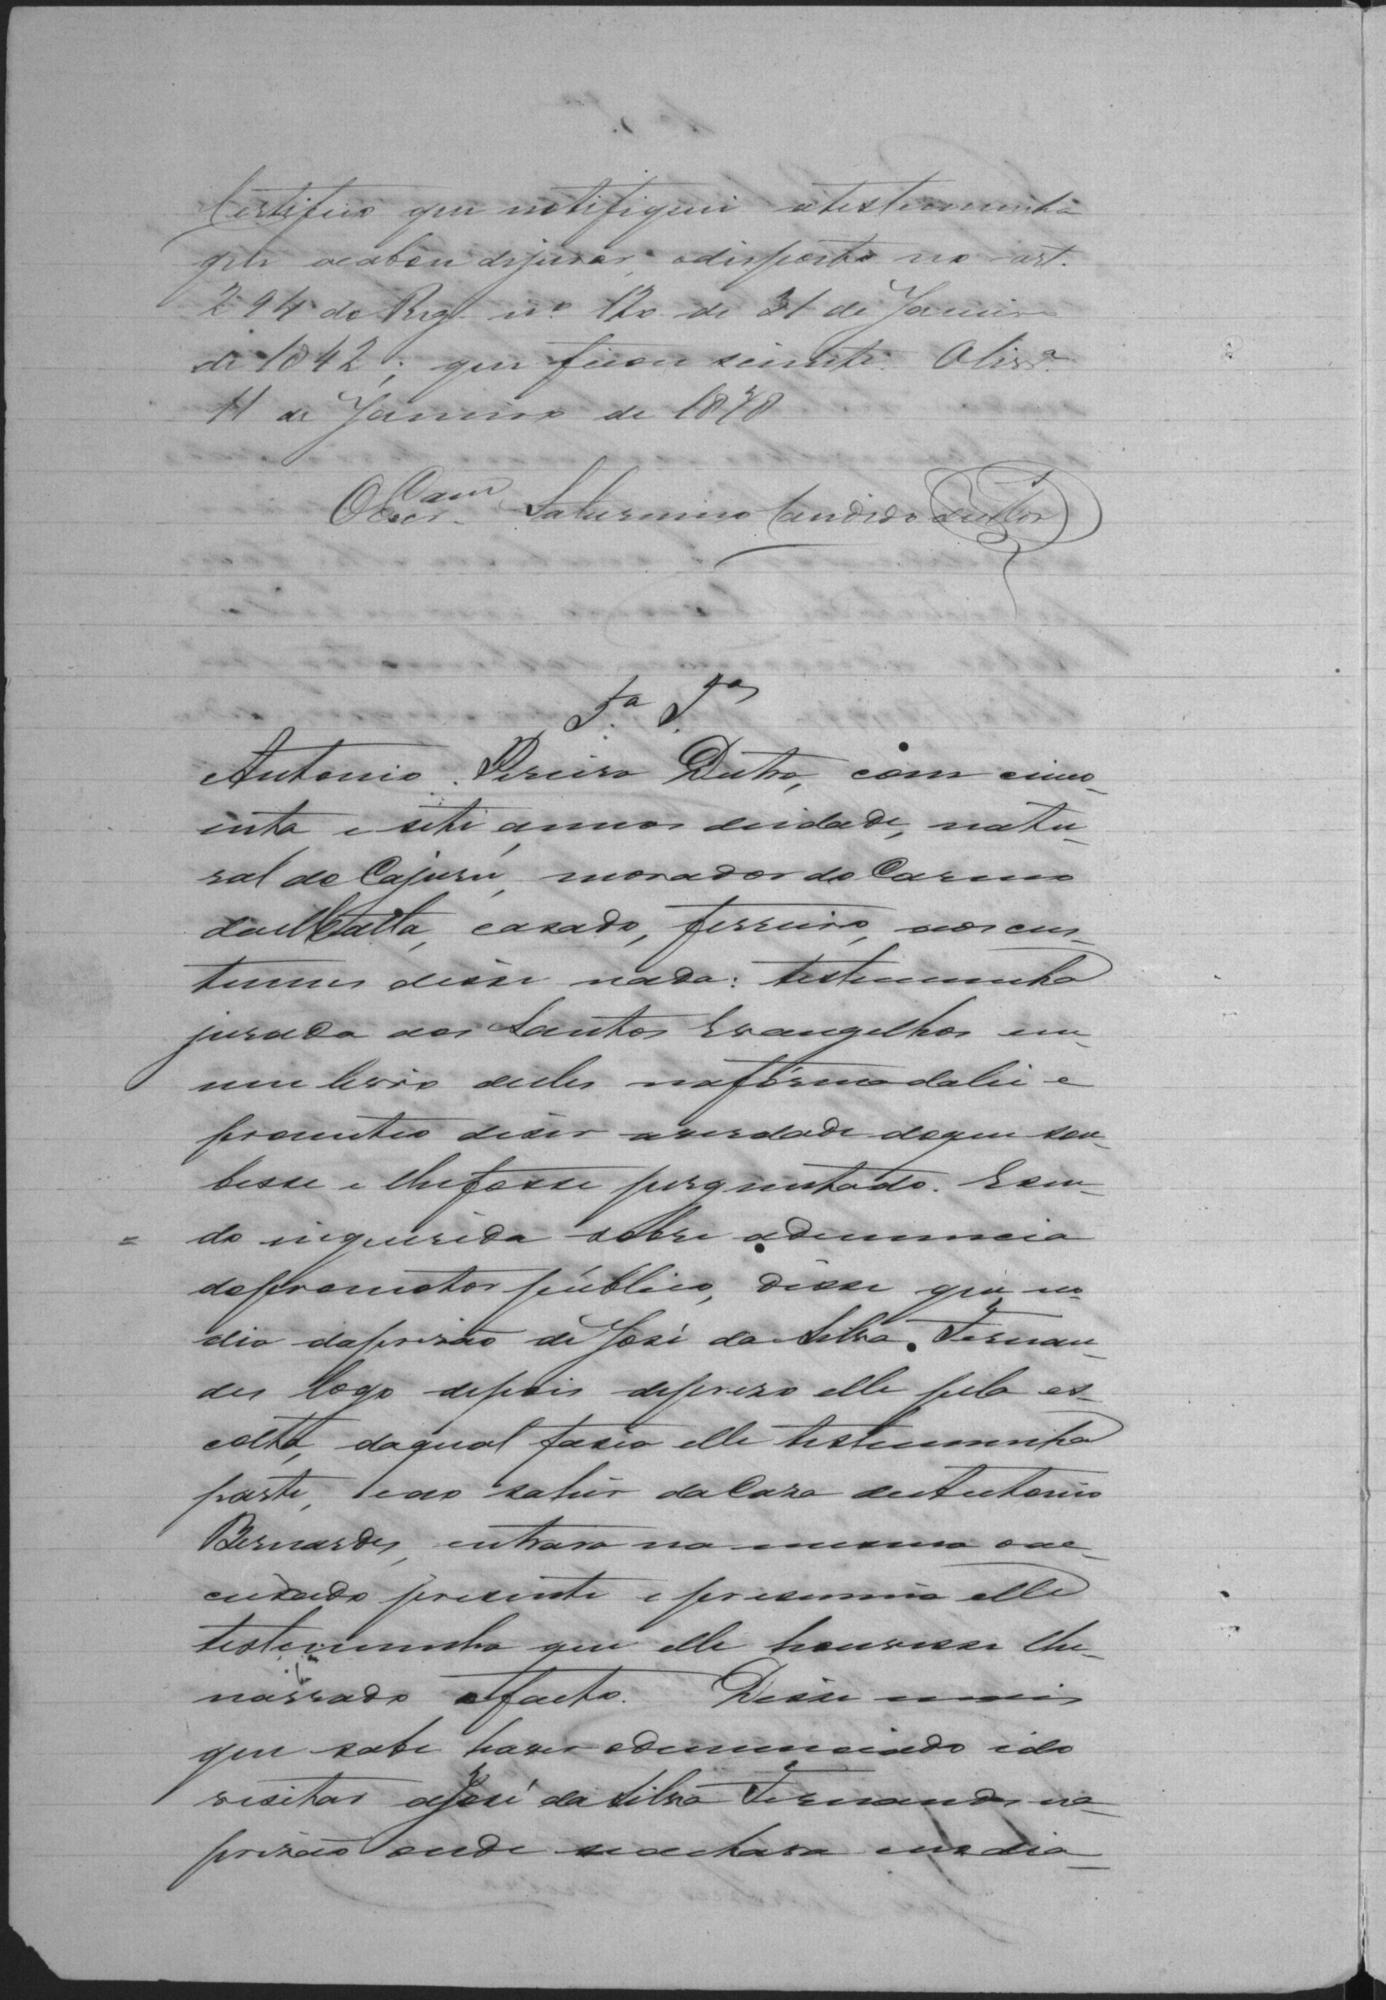 Certifico que notifiquei atestemunha
que acabou dejurar, odisposto no art.
294 do Reg. nº 120 de 31 de Janeiro
de 1842; que ficou sciente. Olivrª
11 de Janeiro de 1878
O Escr. Saturnino Candido
5.ª T.ª
Antonio Pereira Dutra, com cinco-
enta e sete annos deidade, natu-
ral do Cajurú, morador do Carmo
da Matta, casado, ferreiro, aos cus-
tumes disse nada: testemunha
jurada aos Santos Evangelhos em
um livro delles naforma dalei e
prometeo diser averdade doque sou-
besse e lhefosse perguntado. E sen-
do inquirida sobre adenuncia
dopromotor publico, disse que no
dia daprisão de José da Silva Fernan-
des logo depois depreso elle pela es-
colta, daqual fasia elle testemunha
parte, e ao sahir da Casa de Antonio
Bernardes, entrara na mesma oac-
cusado presente e presumia elle
testemunha que elle houvesse lhe
narrado ofacto. Disse mais
que sabe haver odenunciado ido
visitar a José da Silva Fernandes na
prisão onde seachava em dia